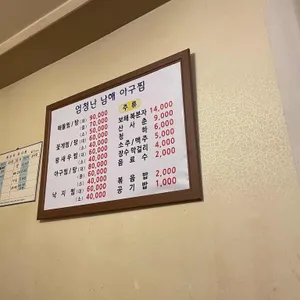 엄청난 남해 아구찜
해물찜/탕 (대) 90,000
(중) 70,000
(소) 50,000
꽃게찜/탕 (대) 60,000
(소) 40,000
왕새우찜 (대) 60,000
(소) 40,000
아구찜/탕 (대) 80,000
(중) 60,000
(소) 40,000
낙지찜 (대) 60,000
(소) 40,000
주류
보해복분자 14,000
산사춘 9,000
청하 6,000
소주/맥주 5,000
장수막걸리 4,000
음료수 2,000
볶음밥 2,000
공기밥 1,000